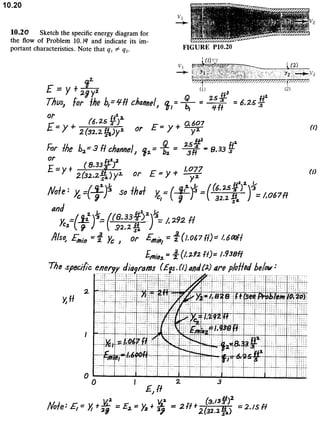 10.20
10.20 Sketch the specific energy diagram for
the flow of Problem 10.19 and indicate its im-
portant characteristics. Note that q₁ ≠ q₂.
V₁
V₂
FIGURE P10.20
(1)
V₁ y₁ y₂ V₂
(2)
(1) (2)
E = y + q²/2gy²
Thus, for the b₁ = 4 ft channel, q₁ = Q/b₁ = 25 ft³/s / 4 ft = 6.25 ft²/s
or
E = y + (6.25 ft²/s)² / 2(32.2 ft/s²)y² or E = y + 0.607/y² (1)
For the b₂ = 3 ft channel, q₂ = Q/b₂ = 25 ft³/s / 3 ft = 8.33 ft²/s
or
E = y + (8.33 ft²/s)² / 2(32.2 ft/s²)y² or E = y + 1.077/y² (1)
Note: y_c = (q²/g)^⅓ so that y_c₁ = (q₁²/g)^⅓ = ((6.25 ft²/s)² / 32.2 ft/s²)^⅓ = 1.067 ft
and
y_c₂ = (q₂²/g)^⅓ = ((8.33 ft²/s)² / 32.2 ft/s²)^⅓ = 1.292 ft
Also, E_min = 3/2 y_c , or E_min₁ = 3/2 (1.067 ft) = 1.600 ft
E_min₂ = 3/2 (1.292 ft) = 1.938 ft
The specific energy diagrams (Eqs. (1) and (2) are plotted below:
y, ft
2
y₁ = 2 ft
y₂ = 1.828 ft (see Problem 10.20)
y_c₂ = 1.292 ft
E_min₂ = 1.938 ft
1
y_c₁ = 1.067 ft
E_min₁ = 1.600 ft
q₂ = 8.33 ft²/s
q₁ = 6.25 ft²/s
0
0 1 2 3
E, ft
Note: E₁ = y₁ + V₁²/2g = E₂ = y₂ + V₂²/2g = 2 ft + (3.13 ft/s)² / 2(32.2 ft/s²) = 2.15 ft